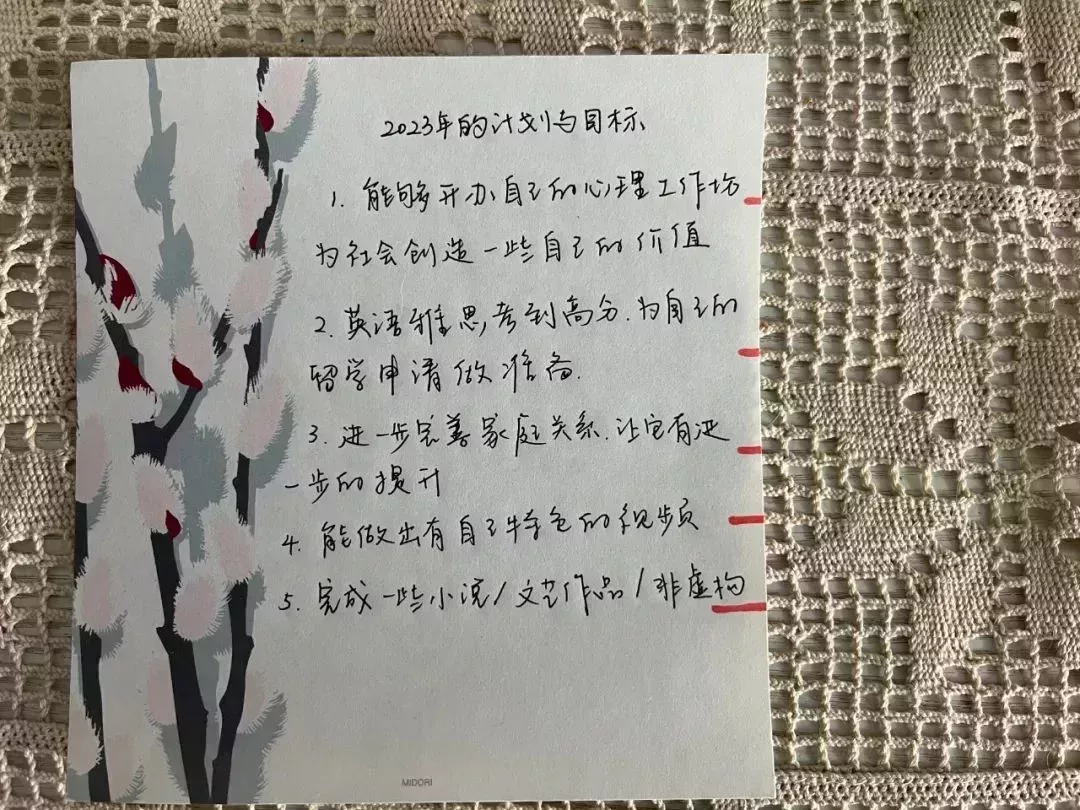 2023年的计划与目标
1. 能够开办自己的心理工作坊
为社会创造一些自己的价值
2. 英语雅思考到高分.为自己的
留学申请做准备.
3. 进一步完善家庭关系.让它有进
一步的提升
4. 能做出有自己特色的视频
5. 完成一些小说/文艺作品/非虚构
MIDORI